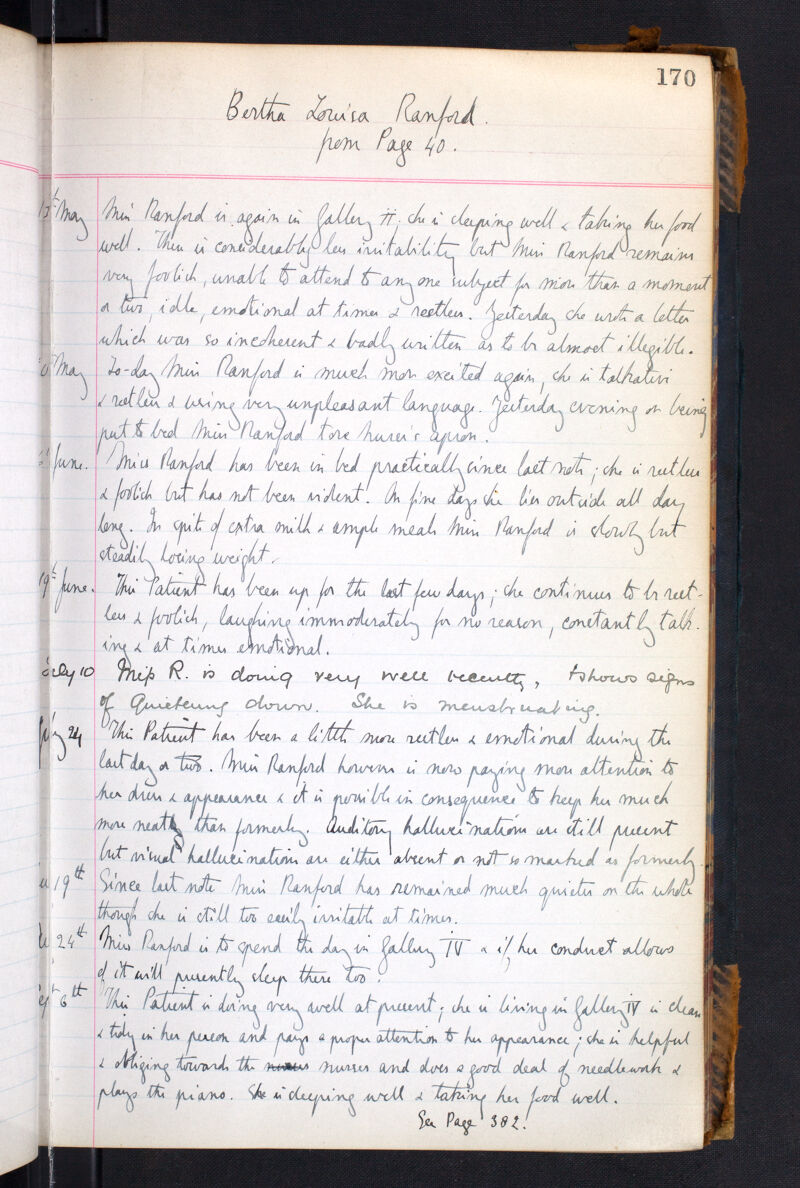 170
Bertha Louisa Ranford.
from Page 40.
May Miss Ranford is again in Gallery II; she is sleeping well & taking her food
well. There is considerably less irritability but Miss Ranford remains
very foolish, unable to attend to any one subject for more than a moment
or two, idle, emotional at times & restless. Yesterday she wrote a letter
which was so incoherent & badly written as to be almost illegible.
May To-day Miss Ranford is much more excited again, she is talkative
& restless & using very unpleasant language. Yesterday evening on being
put to bed Miss Ranford tore nurse's apron.
June. Miss Ranford has been in bed practically since last note; she is restless
& foolish but has not been violent. On fine days she lies outside all day
long. In spite of extra milk & ample meals Miss Ranford is slowly but
steadily losing weight.
19th June. This Patient has been up for the last few days; she continues to be rest-
less & foolish, laughing immoderately for no reason, constantly talk-
ing & at times emotional.
July 10 Miss R. is doing very well recently, & shows signs
of quietening down. She is menstruating.
July 24 This Patient has been a little more restless & emotional during the
last day or two. Miss Ranford however is now paying more attention to
her dress & appearance & it is possible in consequence to keep her much
more neatly than formerly. Auditory hallucinations are still present
but visual hallucinations are either absent or not so marked as formerly
19th Since last note Miss Ranford has remained much quieter on the whole
though she is still too easily irritable at times.
24th Miss Ranford is to spend the day in Gallery IV & if her conduct allows
of it will presently sleep there too.
6th This Patient is doing very well at present; she is living in Gallery IV is clean
& tidy in her person and pays a proper attention to her appearance; she is helpful
& obliging towards the nurses and does a good deal of needlework &
plays the piano. She is sleeping well & taking her food well.
See Page 382.